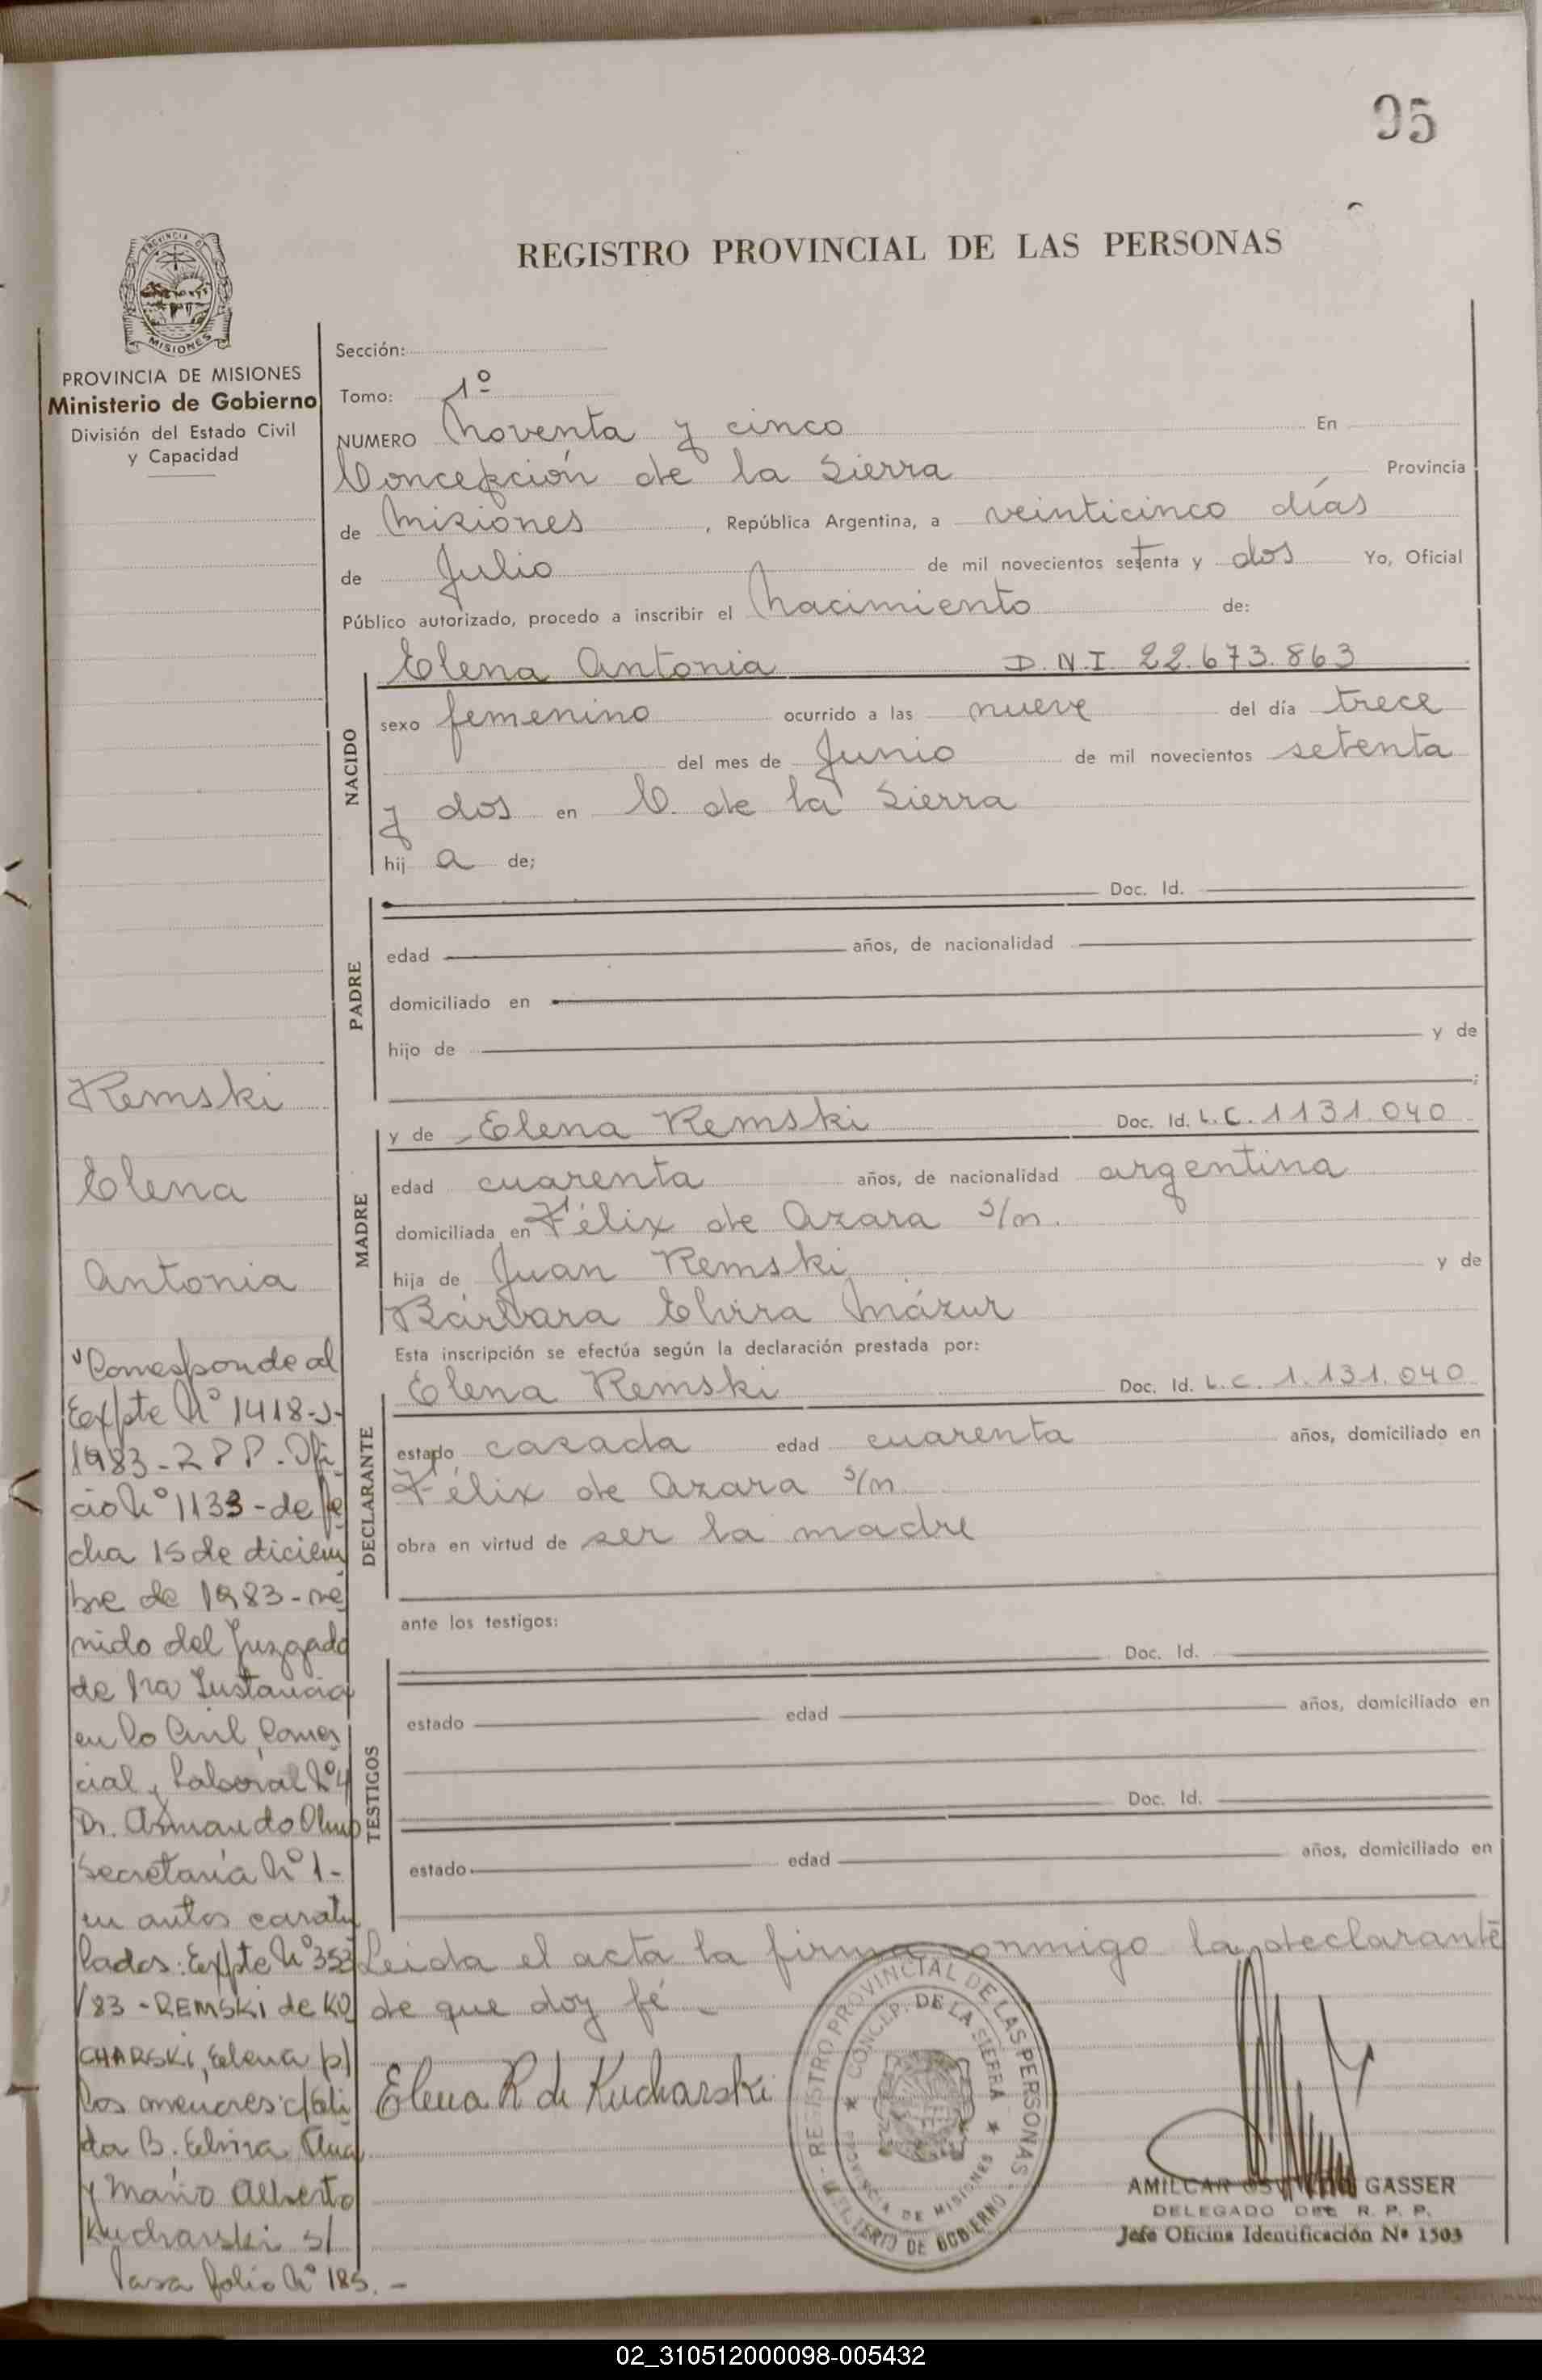 95
REGISTRO PROVINCIAL DE LAS PERSONAS
PROVINCIA DE MISIONES
PROVINCIA DE MISIONES
Ministerio de Gobierno
División del Estado Civil
y Capacidad
Sección:
Tomo: 1º
NUMERO Noventa y cinco En
Concepción de la Sierra Provincia
de Misiones, República Argentina, a veinticinco días
de Julio de mil novecientos setenta y dos Yo, Oficial
Público autorizado, procedo a inscribir el Nacimiento de:
NACIDO
Elena Antonia D.N.I. 22.673.863
sexo femenino ocurrido a las nueve del día trece
del mes de Junio de mil novecientos setenta
y dos en C. de la Sierra
hij a de;
PADRE
Doc. Id.
edad años, de nacionalidad
domiciliado en
hijo de y de
;
MADRE
y de Elena Remski Doc. Id. L.C. 1131.040
edad cuarenta años, de nacionalidad argentina
domiciliada en Félix de Azara s/n.
hija de Juan Remski y de
Bárbara Elvira Mázur
Esta inscripción se efectúa según la declaración prestada por:
DECLARANTE
Elena Remski Doc. Id. L.C. 1.131.040
estado casada edad cuarenta años, domiciliado en
Félix de Azara s/n
obra en virtud de ser la madre
ante los testigos:
TESTIGOS
Doc. Id.
estado edad años, domiciliado en
Doc. Id.
estado edad años, domiciliado en
Leida el acta la firma conmigo la declarante
de que doy fé -
Elena R. de Kucharski
REGISTRO PROVINCIAL DE LAS PERSONAS - MINISTERIO DE GOBIERNO -
CONCEP. DE LA SIERRA
PROVINCIA DE MISIONES
AMILCAR GASSER
DELEGADO DEL R. P. P.
Jefe Oficina Identificación Nº 1503
Remski
Elena
Antonia
"Corresponde al
Expte Nº 1418-J-
1983-RPP. Ofi
cio Nº 1133-de fe
cha 15 de diciem
bre de 1983-ve
nido del Juzgado
de 1ra Instancia
en lo Civil, Comer
cial y Laboral Nº4
Dr. Armando
Secretaría Nº 1-
en autos caratu
lados: Expte Nº 353
/83 - REMSKI de KU
CHARSKI, Elena p/
los menores:
B. Elvira, Ana
y Mario Alberto
Kucharski s/
Pasa folio Nº 185.-
02_310512000098-005432